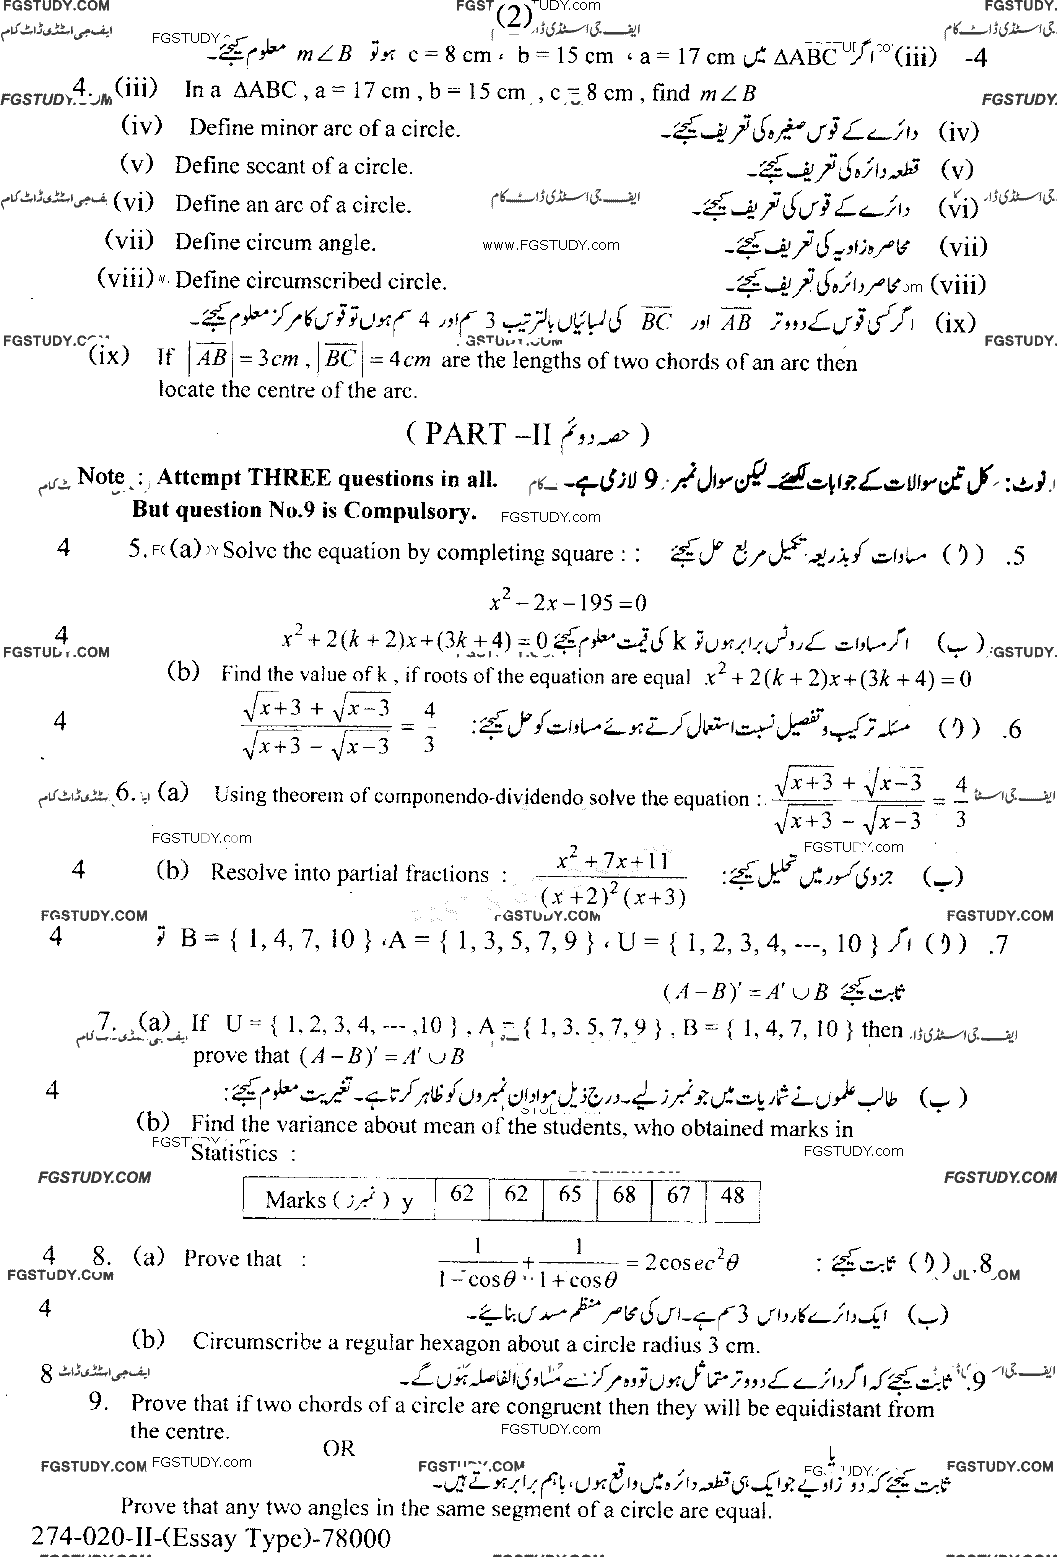 FGSTUDY.COM FGSTUDY.com FGSTUDY.
(2)
ایف جی اسٹڈی ڈاٹ کام
-4 (iii) اگر ΔABC میں a = 17 cm ، b = 15 cm ، c = 8 cm ہو تو m∠B معلوم کیجئے۔
4. (iii) In a ΔABC , a = 17 cm , b = 15 cm , c = 8 cm , find m∠B
FGSTUDY.COM FGSTUDY.
(iv) Define minor arc of a circle. (iv) دائرے کے قوس صغیرہ کی تعریف کیجئے۔
(v) Define secant of a circle. (v) قطعہ دائرہ کی تعریف کیجئے۔
(vi) Define an arc of a circle. (vi) دائرے کے قوس کی تعریف کیجئے۔
ایف جی اسٹڈی ڈاٹ کام
(vii) Define circum angle. www.FGSTUDY.com (vii) محاصرہ زاویہ کی تعریف کیجئے۔
(viii) Define circumscribed circle. (viii) محاصر دائرہ کی تعریف کیجئے۔
(ix) اگر کسی قوس کے دو وتر AB اور BC کی لمبائیاں بالترتیب 3 سم اور 4 سم ہوں تو قوس کا مرکز معلوم کیجئے۔
FGSTUDY.COM GSTUDY.COM FGSTUDY.
(ix) If |AB| = 3cm , |BC| = 4cm are the lengths of two chords of an arc then
locate the centre of the arc.
( PART –II حصہ دوئم )
Note : Attempt THREE questions in all. نوٹ: کل تین سوالات کے جوابات لکھئے۔ لیکن سوال نمبر 9 لازمی ہے۔
But question No.9 is Compulsory. FGSTUDY.com
4 5. (a) Solve the equation by completing square : : مساوات کو بذریعہ تکمیل مربع حل کیجئے (ا) .5
x² – 2x – 195 = 0
4 x² + 2(k + 2)x + (3k + 4) = 0 اگر مساوات کے روٹس برابر ہوں تو k کی قیمت معلوم کیجئے (ب)
FGSTUDY.COM FGSTUDY.
(b) Find the value of k , if roots of the equation are equal x² + 2(k + 2)x + (3k + 4) = 0
4 (√x+3 + √x–3)/(√x+3 – √x–3) = 4/3 مسئلہ ترکیب و تفصیل نسبت استعمال کرتے ہوئے مساوات کو حل کیجئے: (ا) .6
6. (a) Using theorem of componendo-dividendo solve the equation : (√x+3 + √x–3)/(√x+3 – √x–3) = 4/3
FGSTUDY.com FGSTUDY.com
4 (b) Resolve into partial fractions : (x² + 7x + 11)/((x +2)² (x+3)) جزوی کسور میں تحلیل کیجئے: (ب)
FGSTUDY.COM FGSTUDY.COM FGSTUDY.COM
4 .7 (ا) اگر U = { 1, 2, 3, 4, ---, 10 } ، A = { 1, 3, 5, 7, 9 } ، B = { 1, 4, 7, 10 } تو
ثابت کیجئے (A – B)′ = A′ ∪ B
7. (a) If U = { 1, 2, 3, 4, --- ,10 } , A = { 1, 3. 5, 7, 9 } , B = { 1, 4, 7, 10 } then
prove that (A – B)′ = A′ ∪ B
4 (ب) طالب علموں نے شماریات میں جو نمبرز لیے۔ درج ذیل مواد ان نمبروں کو ظاہر کرتا ہے۔ تغیریت معلوم کیجئے:
(b) Find the variance about mean of the students, who obtained marks in
Statistics : FGSTUDY.com
FGSTUDY.COM FGSTUDY.COM
Marks (نمبرز) y 62 62 65 68 67 48
4 8. (a) Prove that : 1/(1 – cosθ) + 1/(1 + cosθ) = 2cosec²θ ثابت کیجئے : (ا) .8
FGSTUDY.COM
4 (ب) ایک دائرے کا رداس 3 سم ہے۔ اس کی محاصر منظم مسدس بنائیے۔
(b) Circumscribe a regular hexagon about a circle radius 3 cm.
8 9. ثابت کیجئے کہ اگر دائرے کے دو وتر متماثل ہوں تو وہ مرکز سے مساوی الفاصلہ ہوں گے۔
9. Prove that if two chords of a circle are congruent then they will be equidistant from
the centre. FGSTUDY.com
OR یا
FGSTUDY.COM FGSTUDY.com FGSTUDY.COM FGSTUDY.COM
ثابت کیجئے کہ دو زاویے جو ایک ہی قطعہ دائرہ میں واقع ہوں، باہم برابر ہوتے ہیں۔
Prove that any two angles in the same segment of a circle are equal.
274-020-II-(Essay Type)-78000